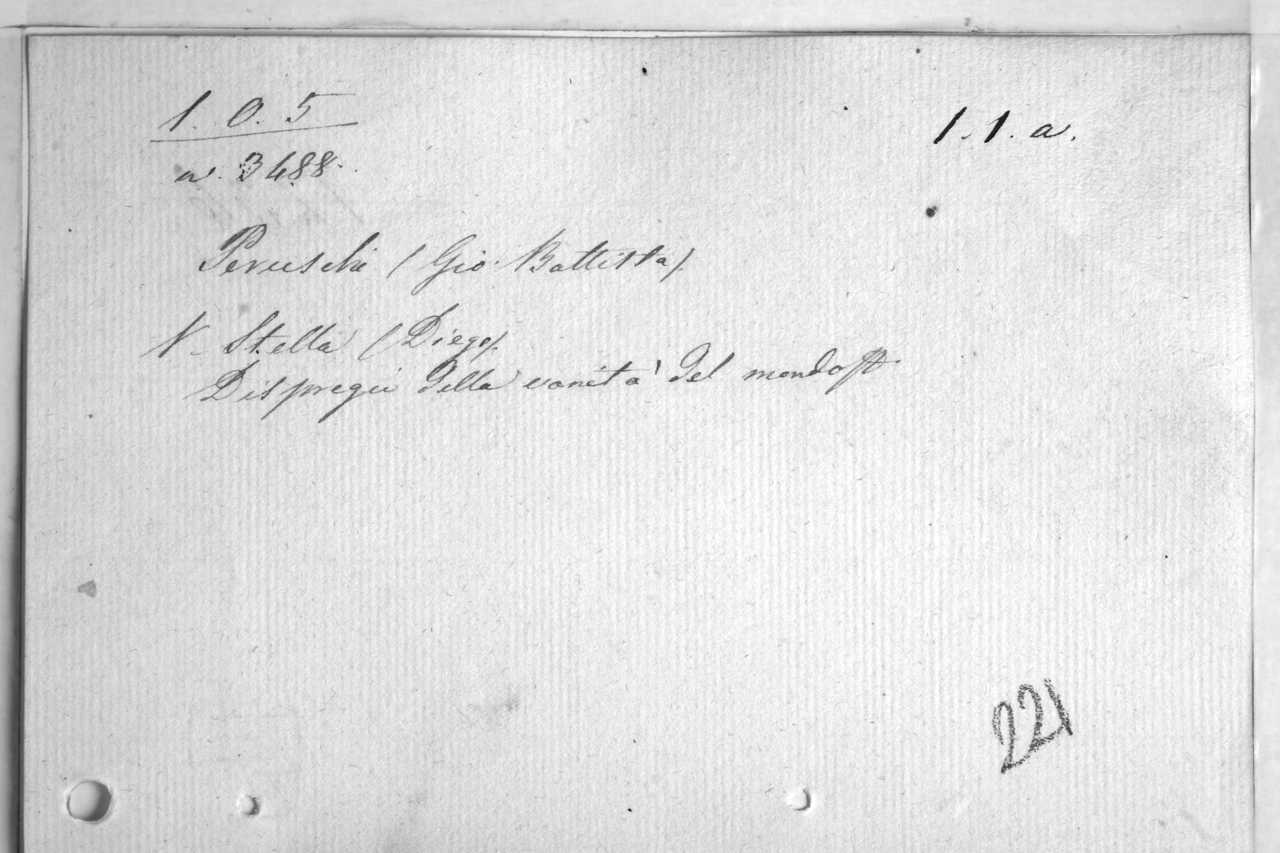 1. 0. 5
n. 3488.
1. 1. a.
Peruschi (Gio: Battista).
V. Stella (Diego).
Dispregii della vanità del mondo
221